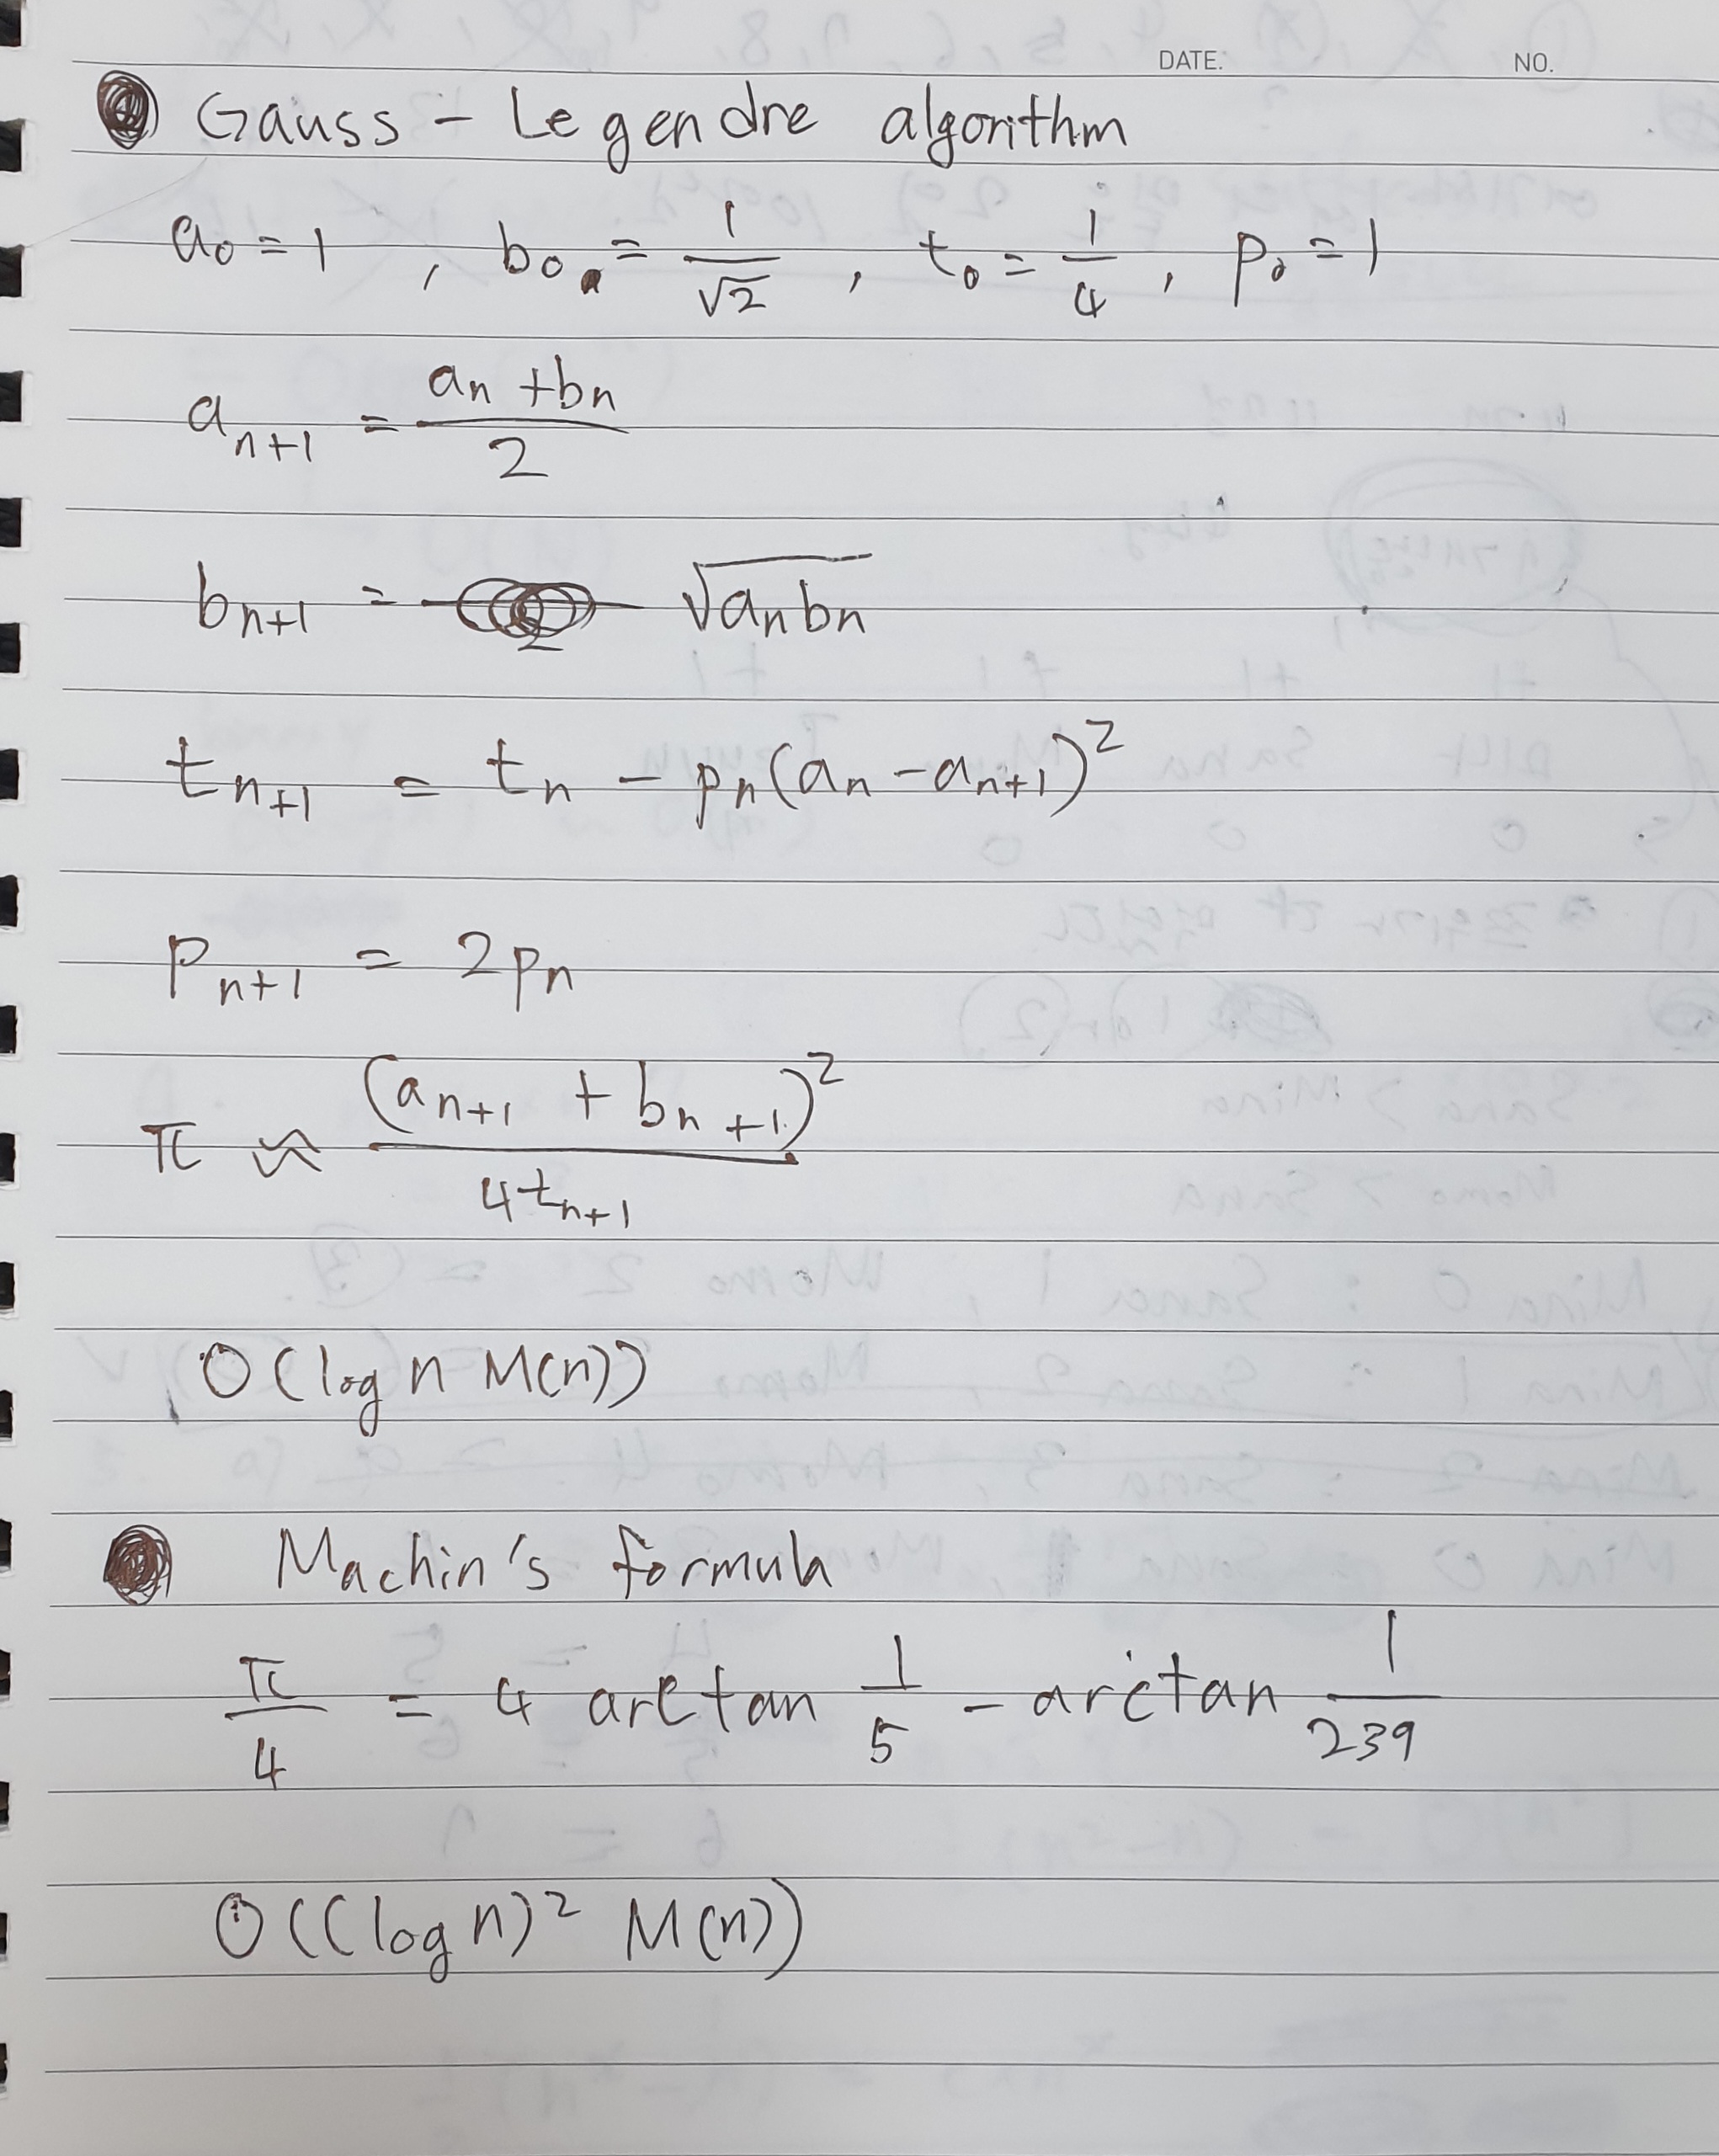 DATE. NO.
Gauss - Legendre algorithm
a₀ = 1 , b₀ = 1/√2 , t₀ = 1/4 , p₀ = 1
aₙ₊₁ = (aₙ + bₙ)/2
bₙ₊₁ = √(aₙbₙ)
tₙ₊₁ = tₙ - pₙ(aₙ - aₙ₊₁)²
pₙ₊₁ = 2pₙ
π ≈ (aₙ₊₁ + bₙ₊₁)²/4tₙ₊₁
O(log n M(n))
Machin's formula
π/4 = 4 arctan 1/5 - arctan 1/239
O((log n)² M(n))